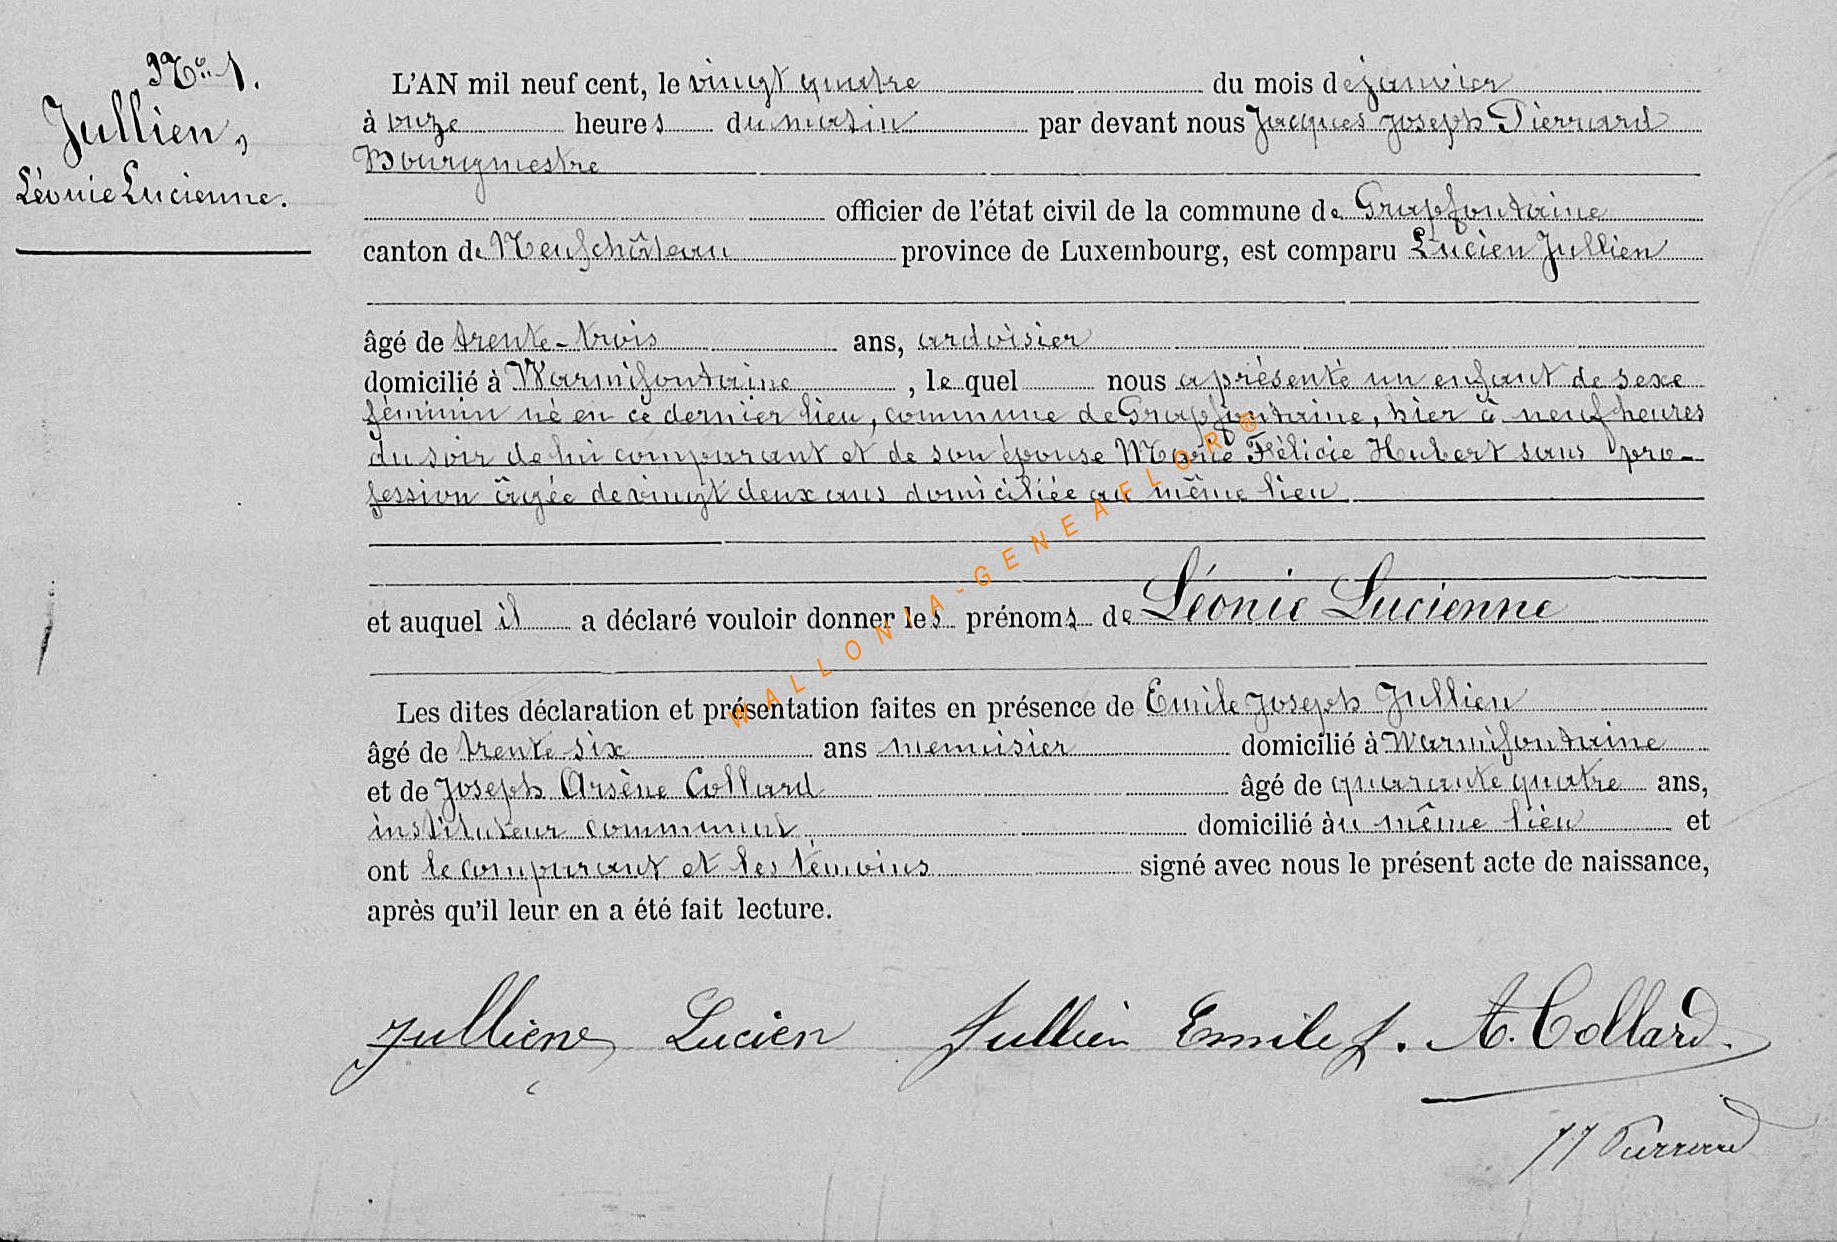 No 1.
Jullien,
Léonie Lucienne.
L'AN mil neuf cent, le vingt quatre du mois de janvier
à onze heures du matin par devant nous Jacques Joseph Pierrard
Bourgmestre
officier de l'état civil de la commune de Grapfontaine
canton de Neufchâteau province de Luxembourg, est comparu Lucien Jullien
âgé de trente-trois ans, ardoisier
domicilié à Warmifontaine, le quel nous a présenté un enfant de sexe
féminin né en ce dernier lieu, commune de Grapfontaine, hier à neuf heures
du soir de lui comparant et de son épouse Marie Félicie Hubert sans pro-
fession âgée de vingt deux ans domiciliée au même lieu
et auquel il a déclaré vouloir donner les prénoms de Léonie Lucienne
Les dites déclaration et présentation faites en présence de Emile Joseph Jullien
âgé de trente six ans menuisier domicilié à Warmifontaine
et de Joseph Arsène Collard âgé de quarante quatre ans,
instituteur communal domicilié au même lieu et
ont le comparant et les témoins signé avec nous le présent acte de naissance,
après qu'il leur en a été fait lecture.
Jullien Lucien Jullien Emile J. A. Collard.
JJ Pierrard
WALLONIA-GENEAFLOR®